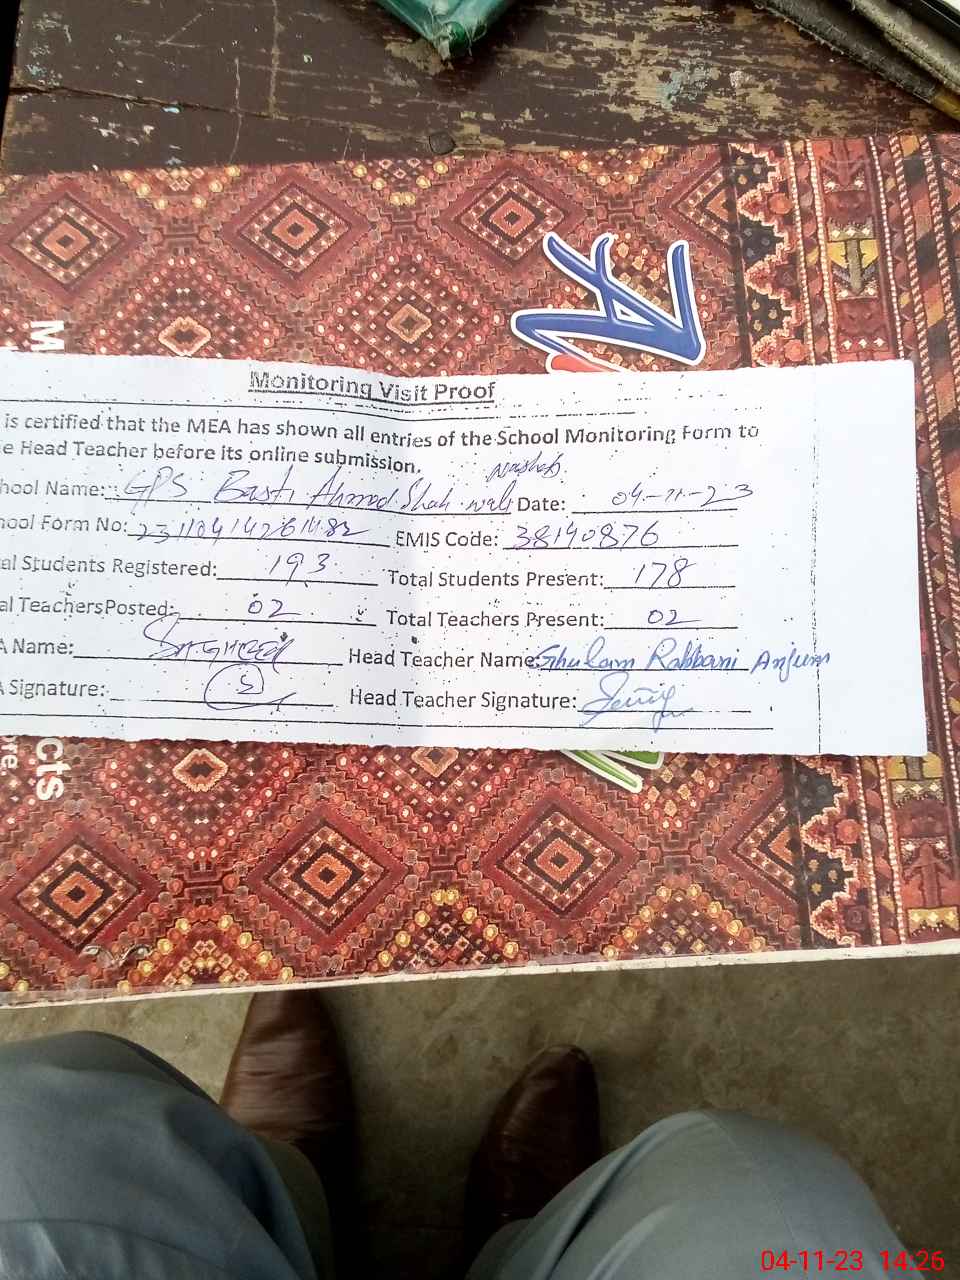 M
Monitoring Visit Proof
is certified that the MEA has shown all entries of the School Monitoring Form to
e Head Teacher before its online submission.
hool Name: GPS Basti Ahmad Shah wali Date: 04-11-23
hool Form No: EMIS Code: 38140876
al Students Registered: 193 Total Students Present: 178
al TeachersPosted: 02 Total Teachers Present: 02
A Name: Head Teacher Name: Ghulam Rabbani Anjum
A Signature: Head Teacher Signature:
cts
re.
04-11-23 14:26